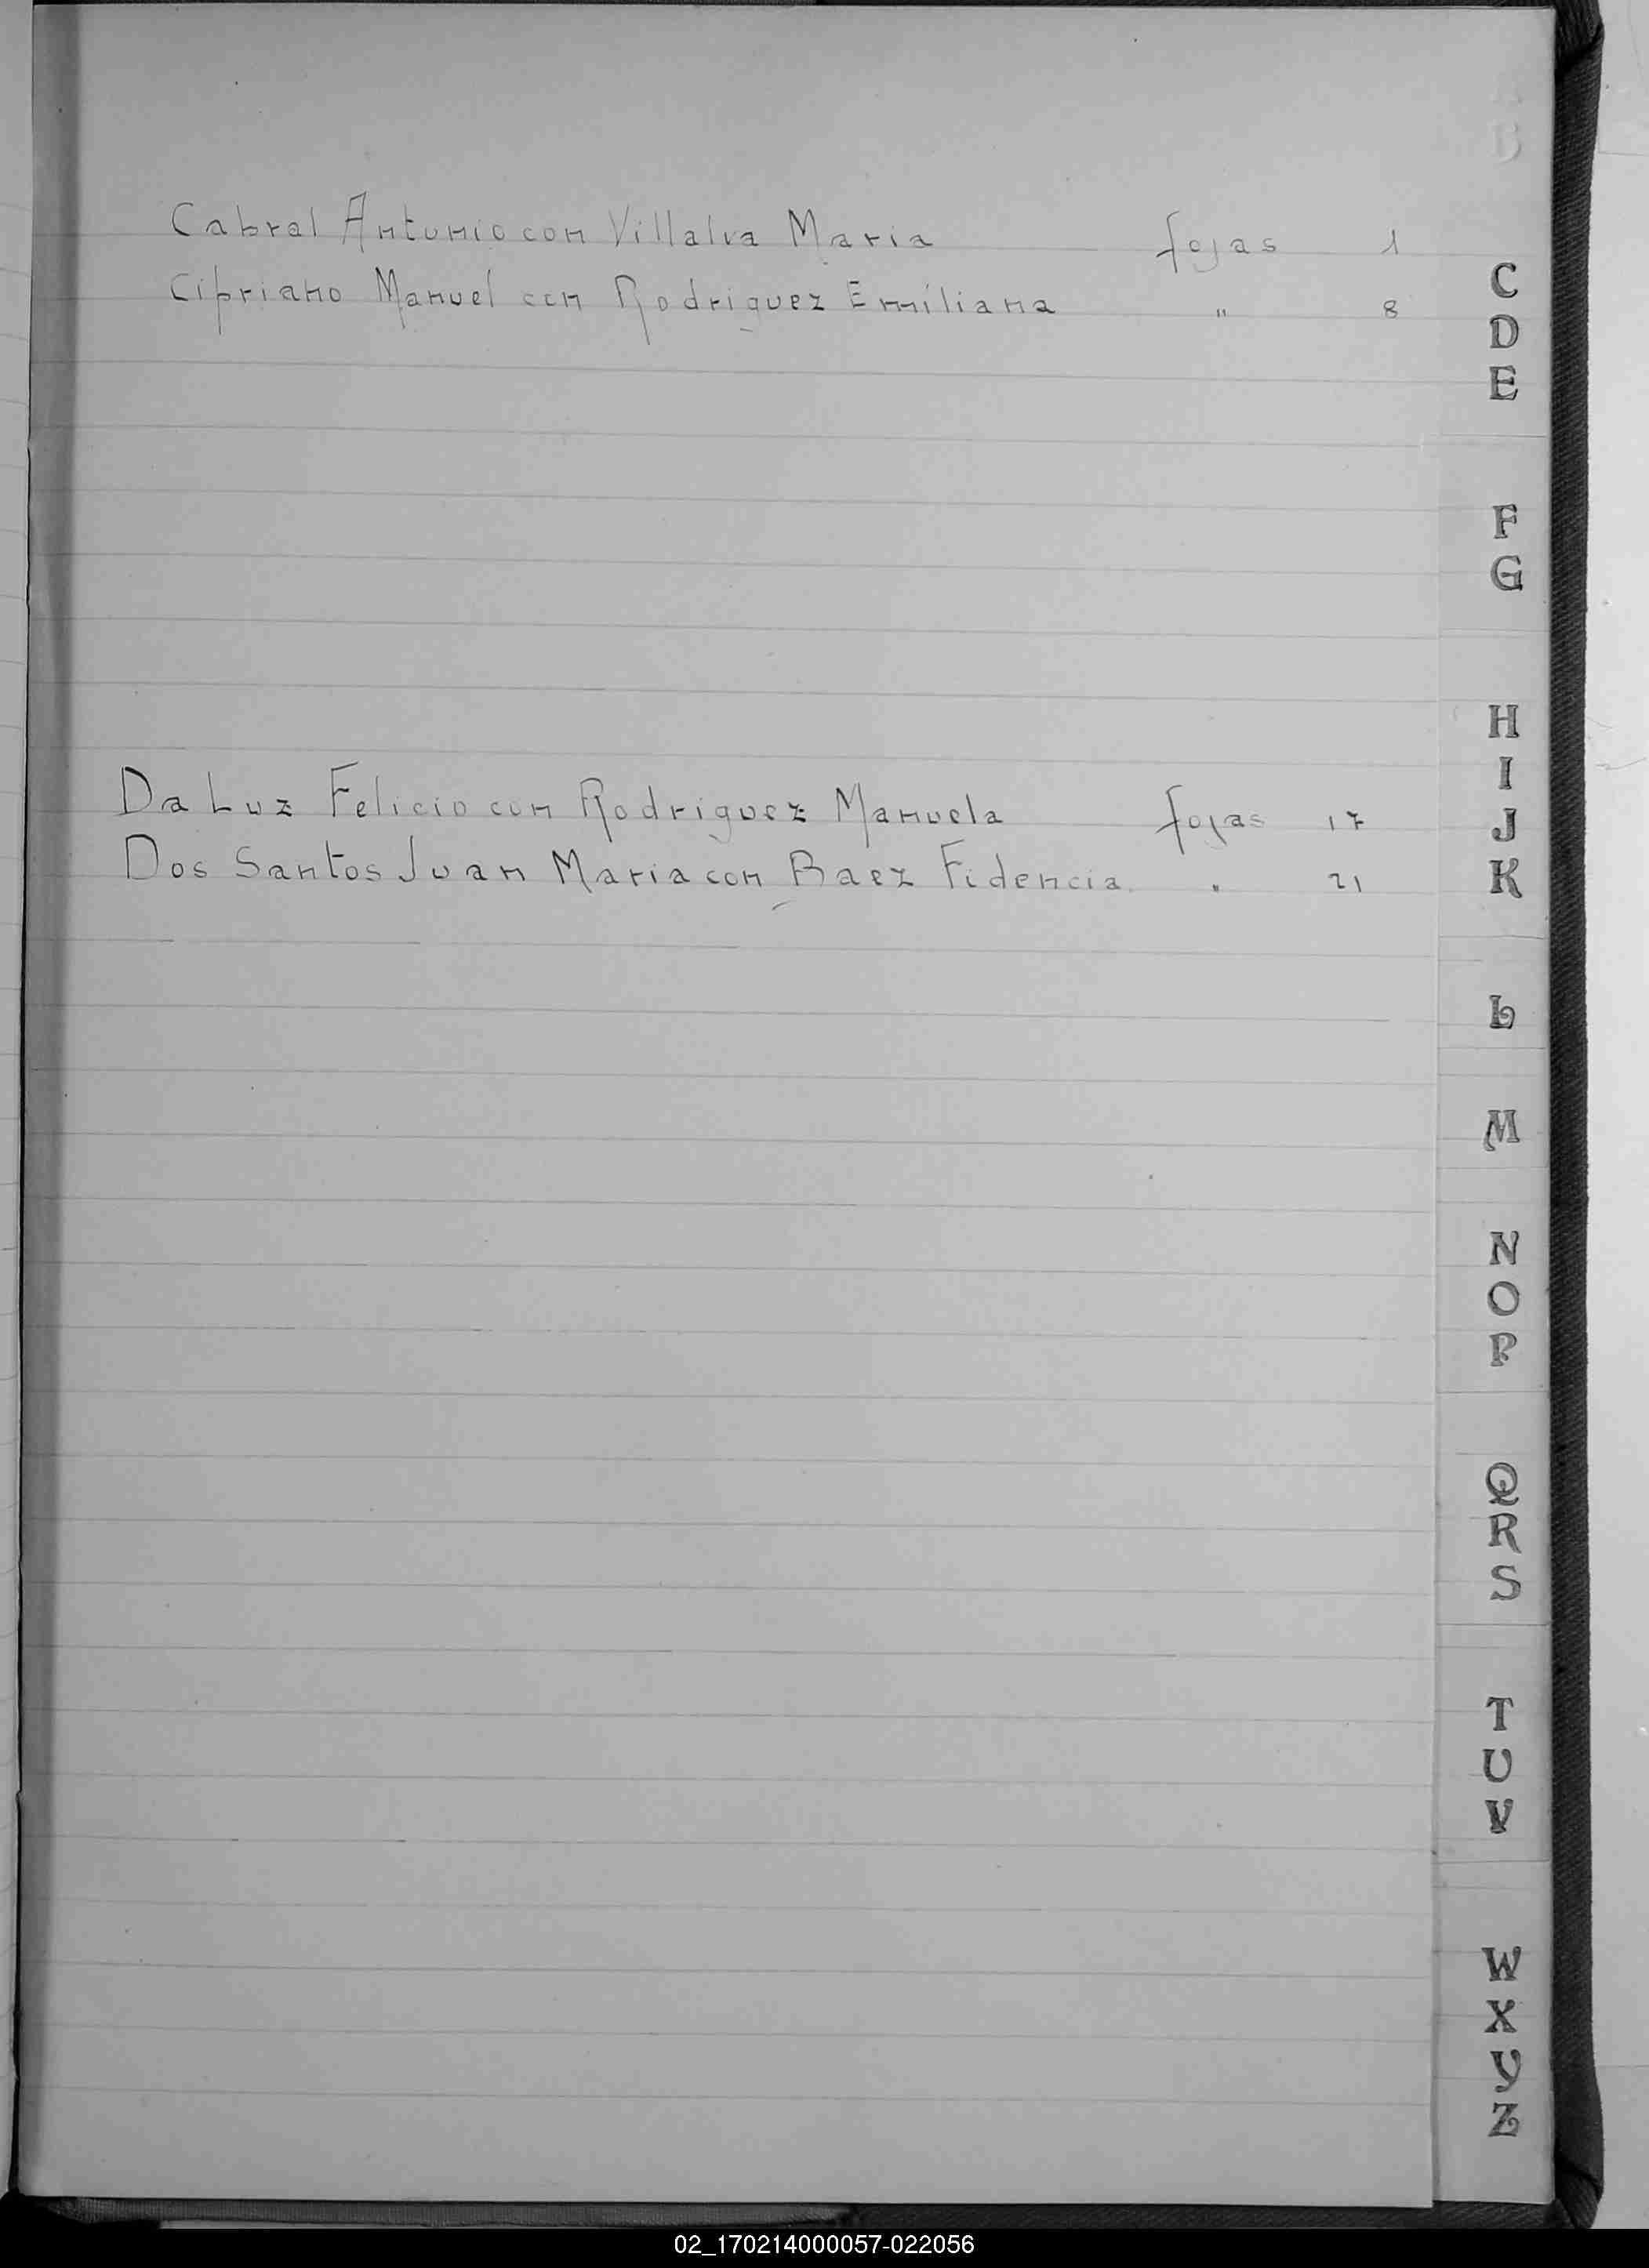 Cabral Antonio con Villalva Maria fojas 1
Cipriano Manuel con Rodriguez Emiliana " 8
Da Luz Felicio con Rodriguez Manuela fojas 17
Dos Santos Juan Maria con Baez Fidencia " 21
B
C
D
E
F
G
H
I
J
K
L
M
N
O
P
Q
R
S
T
U
V
W
X
Y
Z
02_170214000057-022056